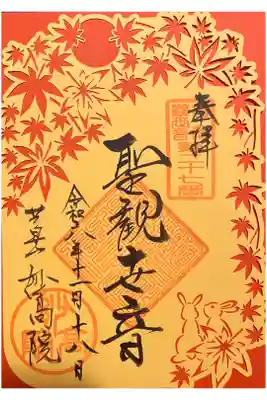 奉拝
聖観世音
令和八年十一月十八日
妙高院